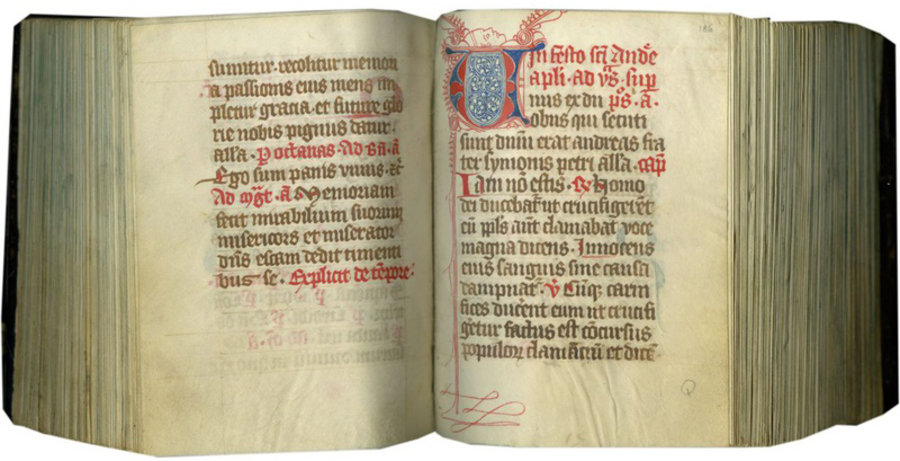 sumitur. recolitur memori
a passionis eius mens im
pletur gracia. et future glo
rie nobis pignus datur.
alla. P octauas. Ad
Ego sum panis uiuus. a
Ad a Memoriam
fecit mirabilium suorum
misericors et miserator
dns escam dedit timenti
bus se. Explicit de tpore.
186
In festo sci Andre
apli. ad vs. sup
nus ex dn ps. a.
Unus ex duobus qui secuti
sunt dnm erat andreas fra
ter symonis petri alla. cap
Iam no estis. R Homo
dei ducebat ut crucifigeret
eu ppls aut clamabat uoce
magna dicens. Innocens
eius sanguis sine causa
dampnat. V Cumq carni
fices ducent eum ut crucifi
getur factus est cocursus
populor clamatiu et dice